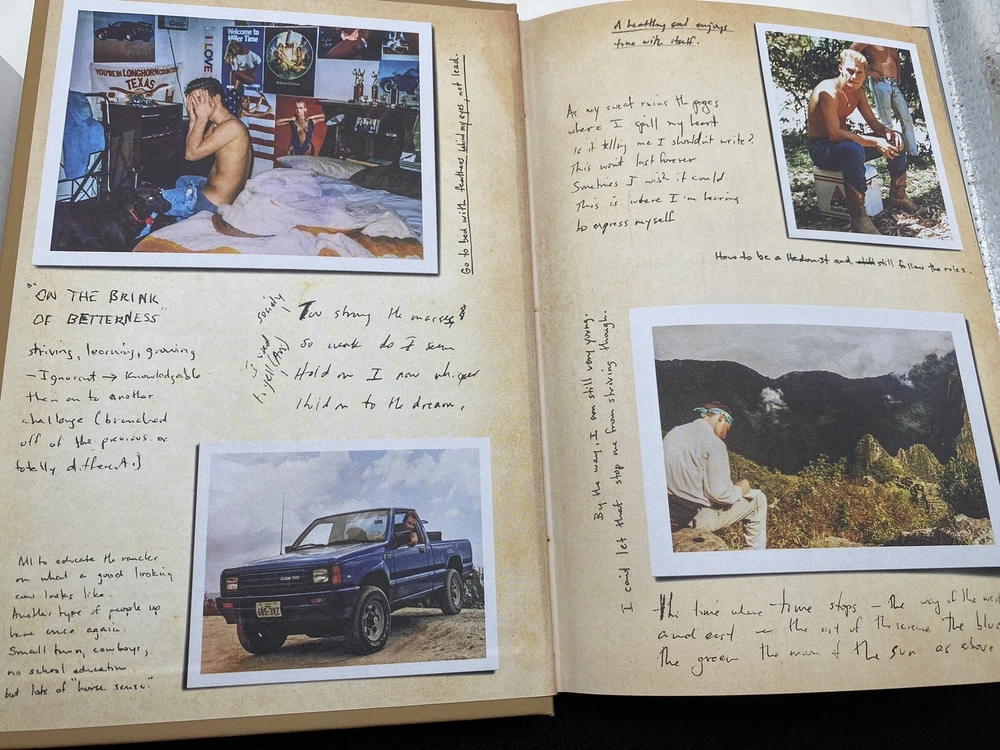 Welcome to
Miller Time
I LOVE
YOU'RE IN LONGHORN COUNTRY
TEXAS
Go to bed with feathers behind my eyes, not lead.
"ON THE BRINK
OF BETTERNESS"
striving, learning, growing
- Ignorant → Knowledgable
then on to another
challenge (branched
off of the previous or
totally different.)
society
I. yell
Too strong the masses
so weak do I seem
Hold on I now whisper
Hold on to the dream.
to educate the rancher
on what a good looking
cow looks like.
Another type of people up
here once again.
Small town, cowboys,
no school education
but lots of "horse sense."
A healthy soul enjoys
time with itself.
As my sweat ruins the pages
where I spill my heart
Is it telling me I shouldn't write?
This wont last forever
Sometimes I wish it could
This is where I'm learning
to express myself
How to be a Hedonist and still follow the rules.
By the way, I am still very young.
I cant let that stop me from striving though.
The time where time stops – the way of the west
and east – the art of the science the blue
the green the moon & the sun as above